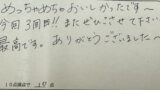 めっちゃめちゃおいしかったです〜
今回3回目!! またぜひこさせて下さい
最高です。ありがとうございました〜
10点満点で
点